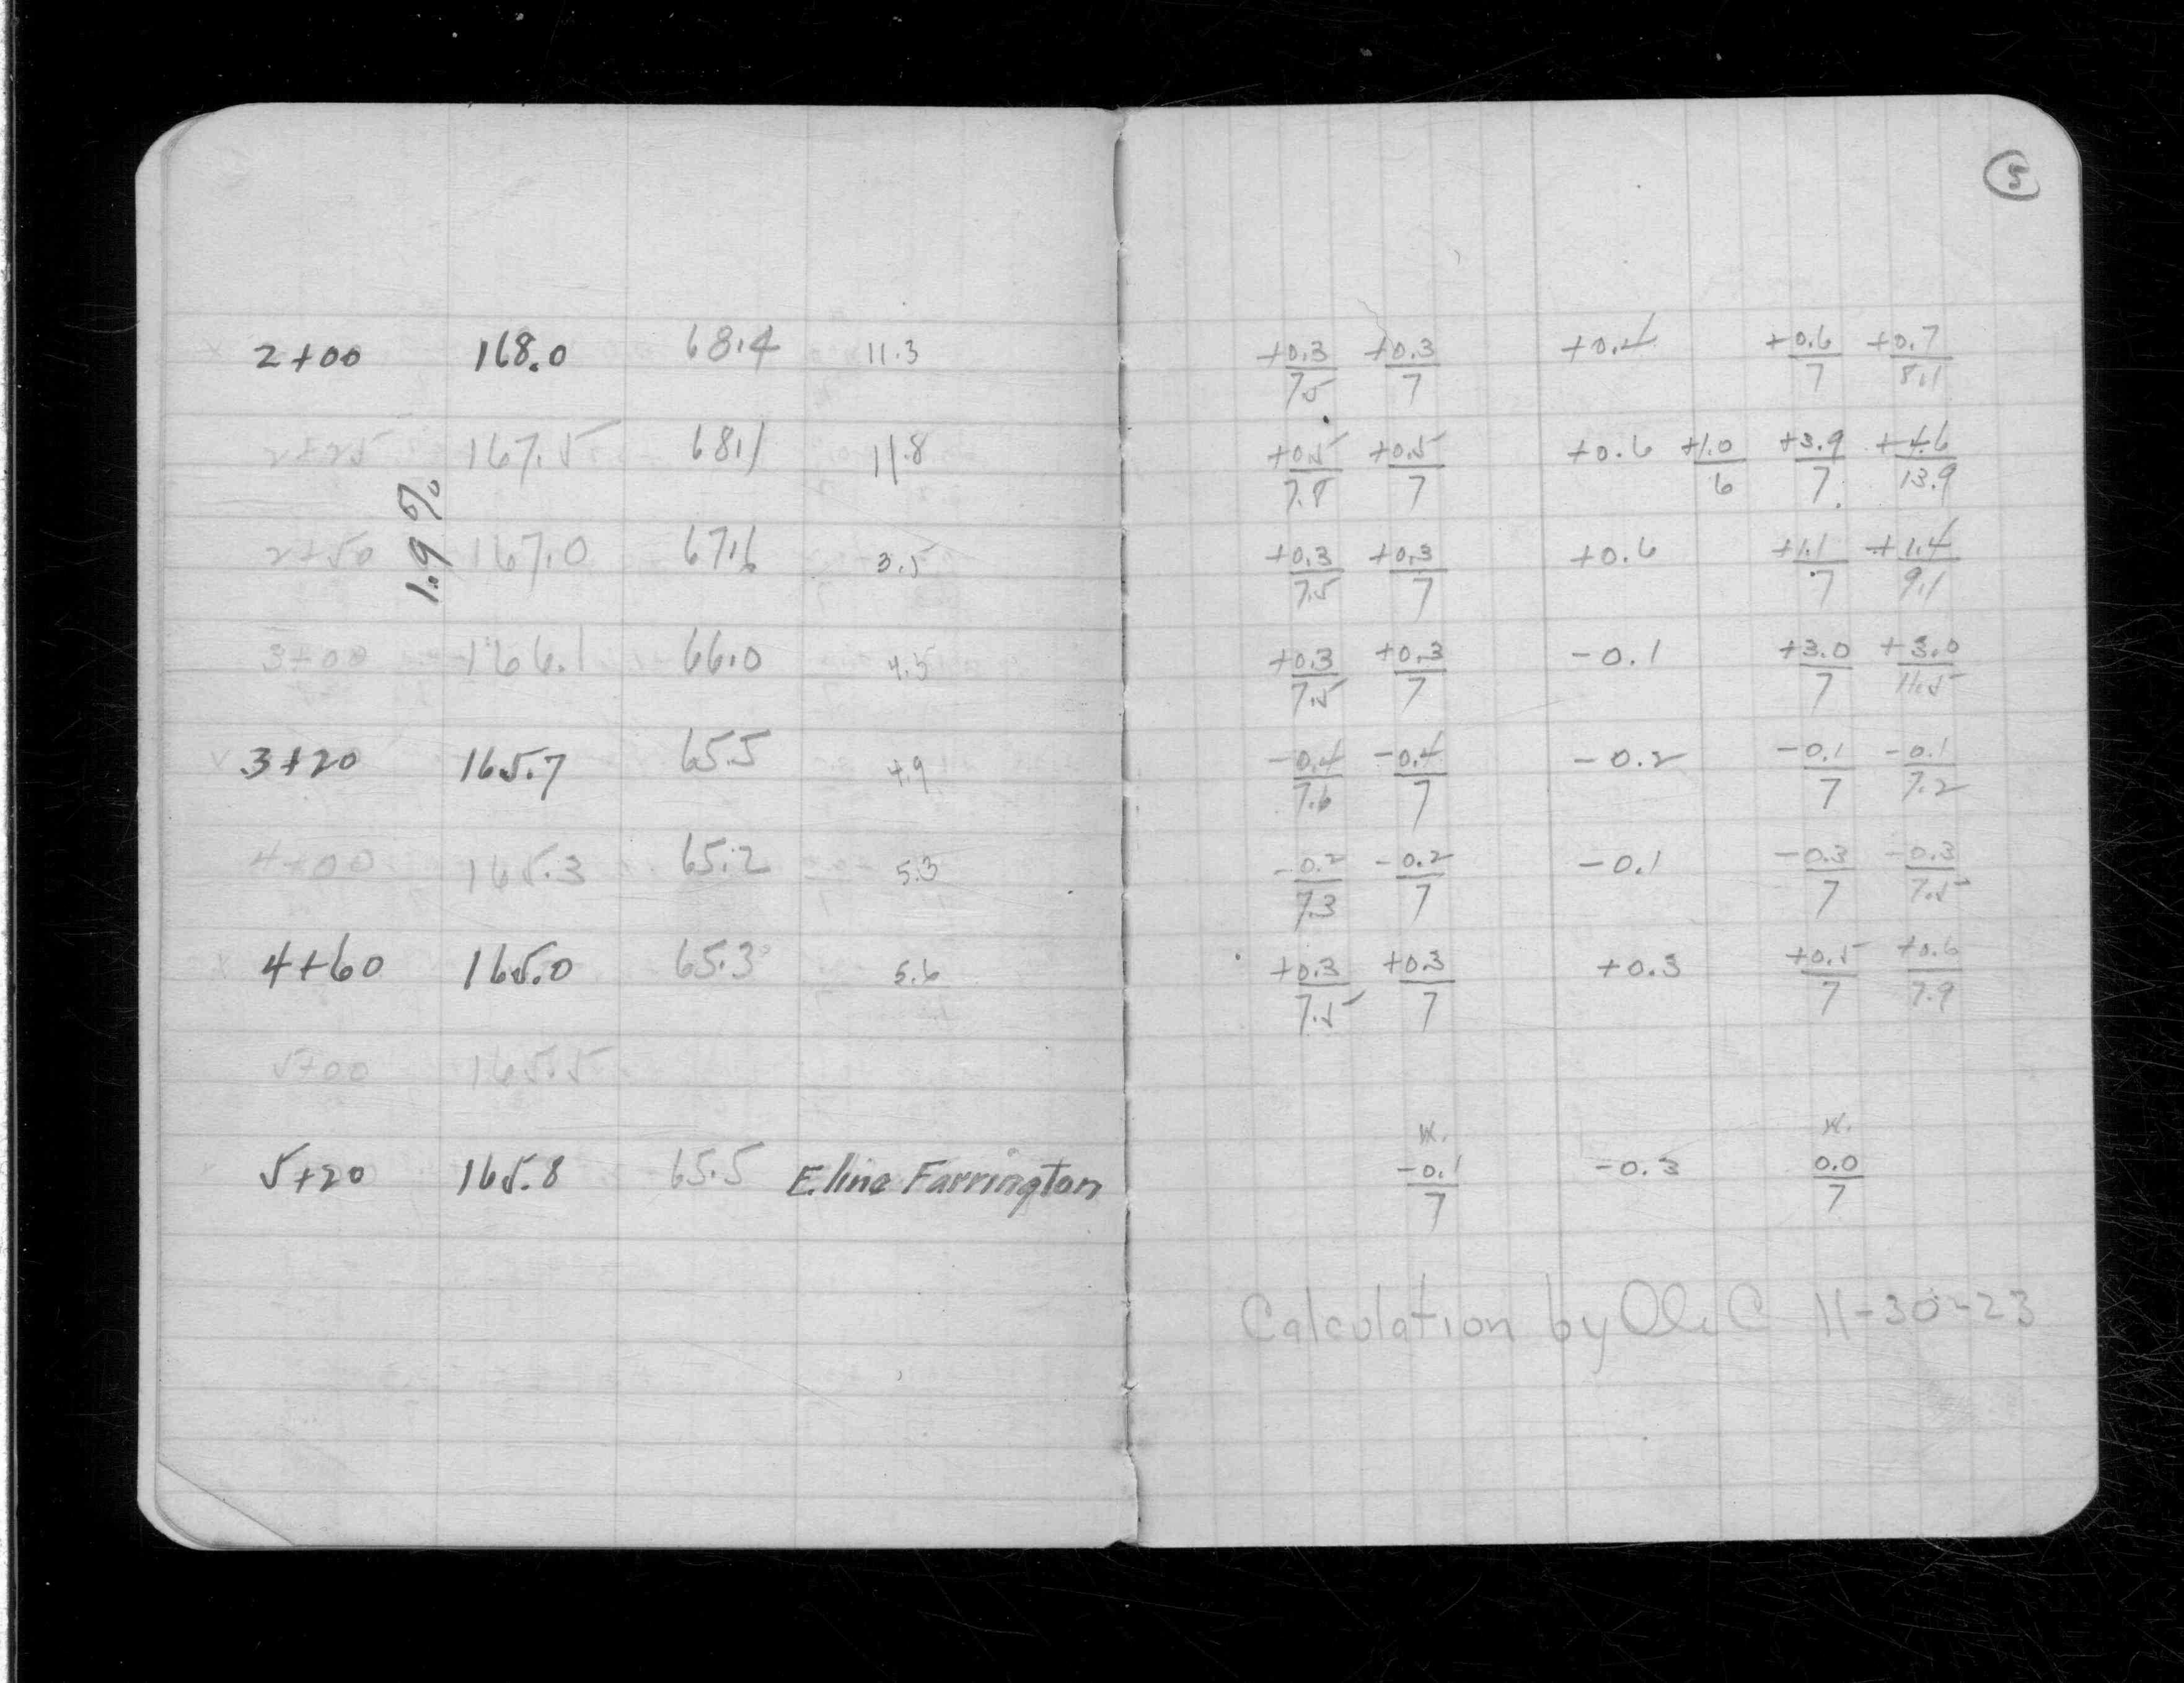 5
2+00 168.0 68.4 11.3 +0.3/7.5 +0.3/7 +0.4 +0.6/7 +0.7/8.1
2+25 167.5 68.1 11.8 +0.5/7.8 +0.5/7 +0.6 +1.0/6 +3.9/7 +4.6/13.9
1.9%
2+50 167.0 67.6 3.5 +0.3/7.5 +0.3/7 +0.6 +1.1/7 +1.4/9.1
3+00 166.1 66.0 4.5 +0.3/7.5 +0.3/7 -0.1 +3.0/7 +3.0/11.5
3+20 165.7 65.5 4.9 -0.4/7.6 -0.4/7 -0.2 -0.1/7 -0.1/7.2
4+00 165.3 65.2 5.3 -0.2/7.3 -0.2/7 -0.1 -0.3/7 -0.3/7.5
4+60 165.0 65.3 5.6 +0.3/7.5 +0.3/7 +0.3 +0.5/7 +0.6/7.9
5+00 165.5
5+20 165.8 65.5 E. line Farrington -0.1/7 -0.3 0.0/7
Calculation by 11-30-23